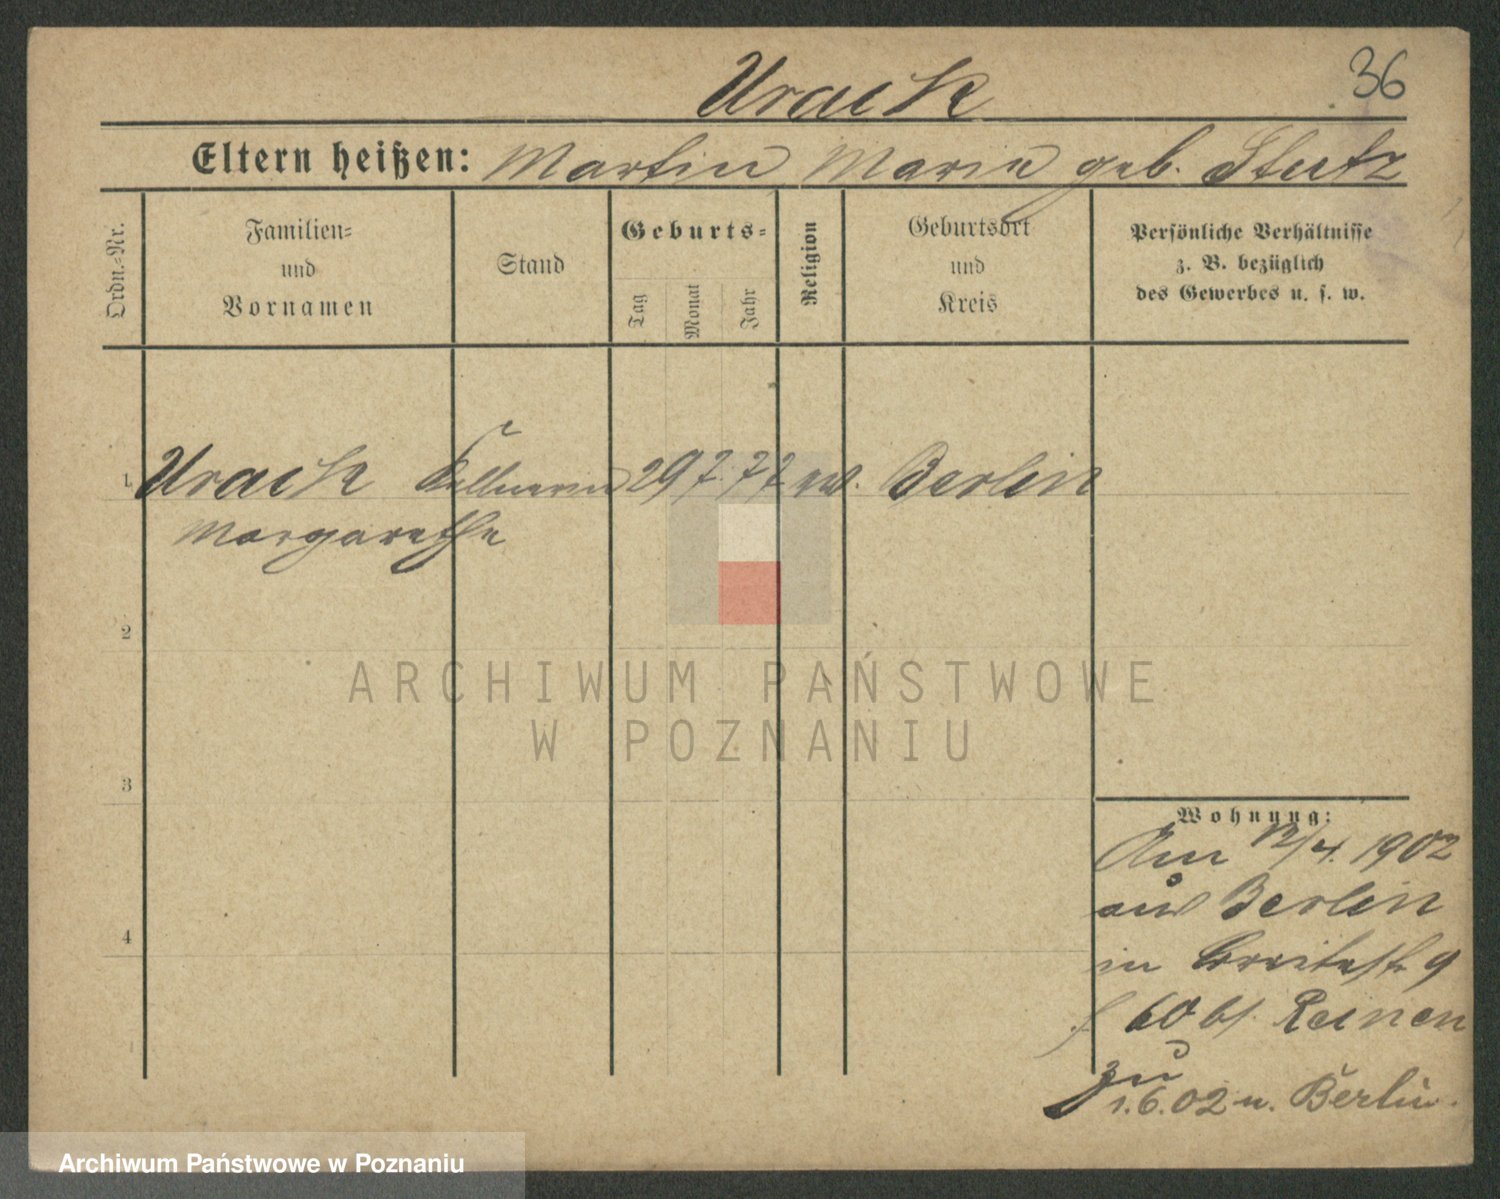 Urack
36
Eltern heißen: Martin Marie geb. Stutz
Ordn.-Nr.
Familien-
und
Vornamen
Stand
Geburts-
Tag
Monat
Jahr
Religion
Geburtsort
und
Kreis
Persönliche Verhältnisse
z. B. bezüglich
des Gewerbes u. s. w.
1. Urack Kellnerin 29 7. 77 ev. Berlin
Margarethe
2
3
4
Wohnung:
Am 12/4. 1902
aus Berlin
in Breitestr 9
60 bei
zu
1.6.02 n. Berlin.
ARCHIWUM PAŃSTWOWE
W POZNANIU
Archiwum Państwowe w Poznaniu